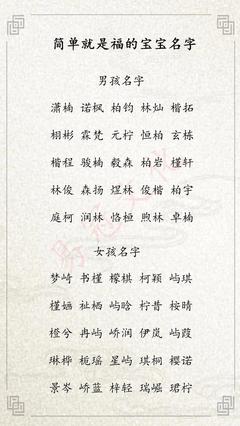 简单就是福的宝宝名字
男孩名字
潇楠 诺枫 柏钧 林灿 楷拓
栩彬 霖梵 元柠 恒柏 玄栋
楷程 骏楠 毅森 柏岩 槿轩
林俊 森扬 煜林 俊楷 柏宇
庭柯 润林 恪桓 煦林 卓楠
女孩名字
梦崎 书槿 檬棋 柯颖 屿琪
槿婳 祉栖 屿晗 柠昔 桉晴
橙兮 冉屿 峤润 伊岚 屿葭
琳桦 栀瑶 星屿 琪桐 樱诺
景岑 峤蓝 梓轻 瑞崛 珺柠